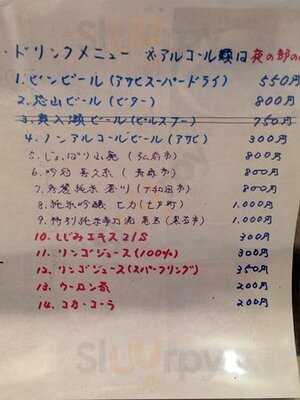 ・ドリンクメニュー ※アルコール類は夜の部の
1.ビンビール(アサヒスーパードライ) 550円
2.恐山ビール(ビター) 800円
3.奥入瀬ビール(ピルスナー) 750円
4.ノンアルコールビール(アサヒ) 300円
5.じょっぱり (弘前市) 800円
6.吟冠 喜久泉 (青森市) 800円
7. 純米 (十和田市) 800円
8.純米吟醸 七力(七戸町) 1,000円
9.特別純米 (黒石市) 1,000円
10.しじみエキス 300円
11.リンゴジュース(100%) 300円
12.リンゴジュース(スパークリング) 350円
13.ウーロン茶 200円
14.コカ・コーラ 200円
sluurpy